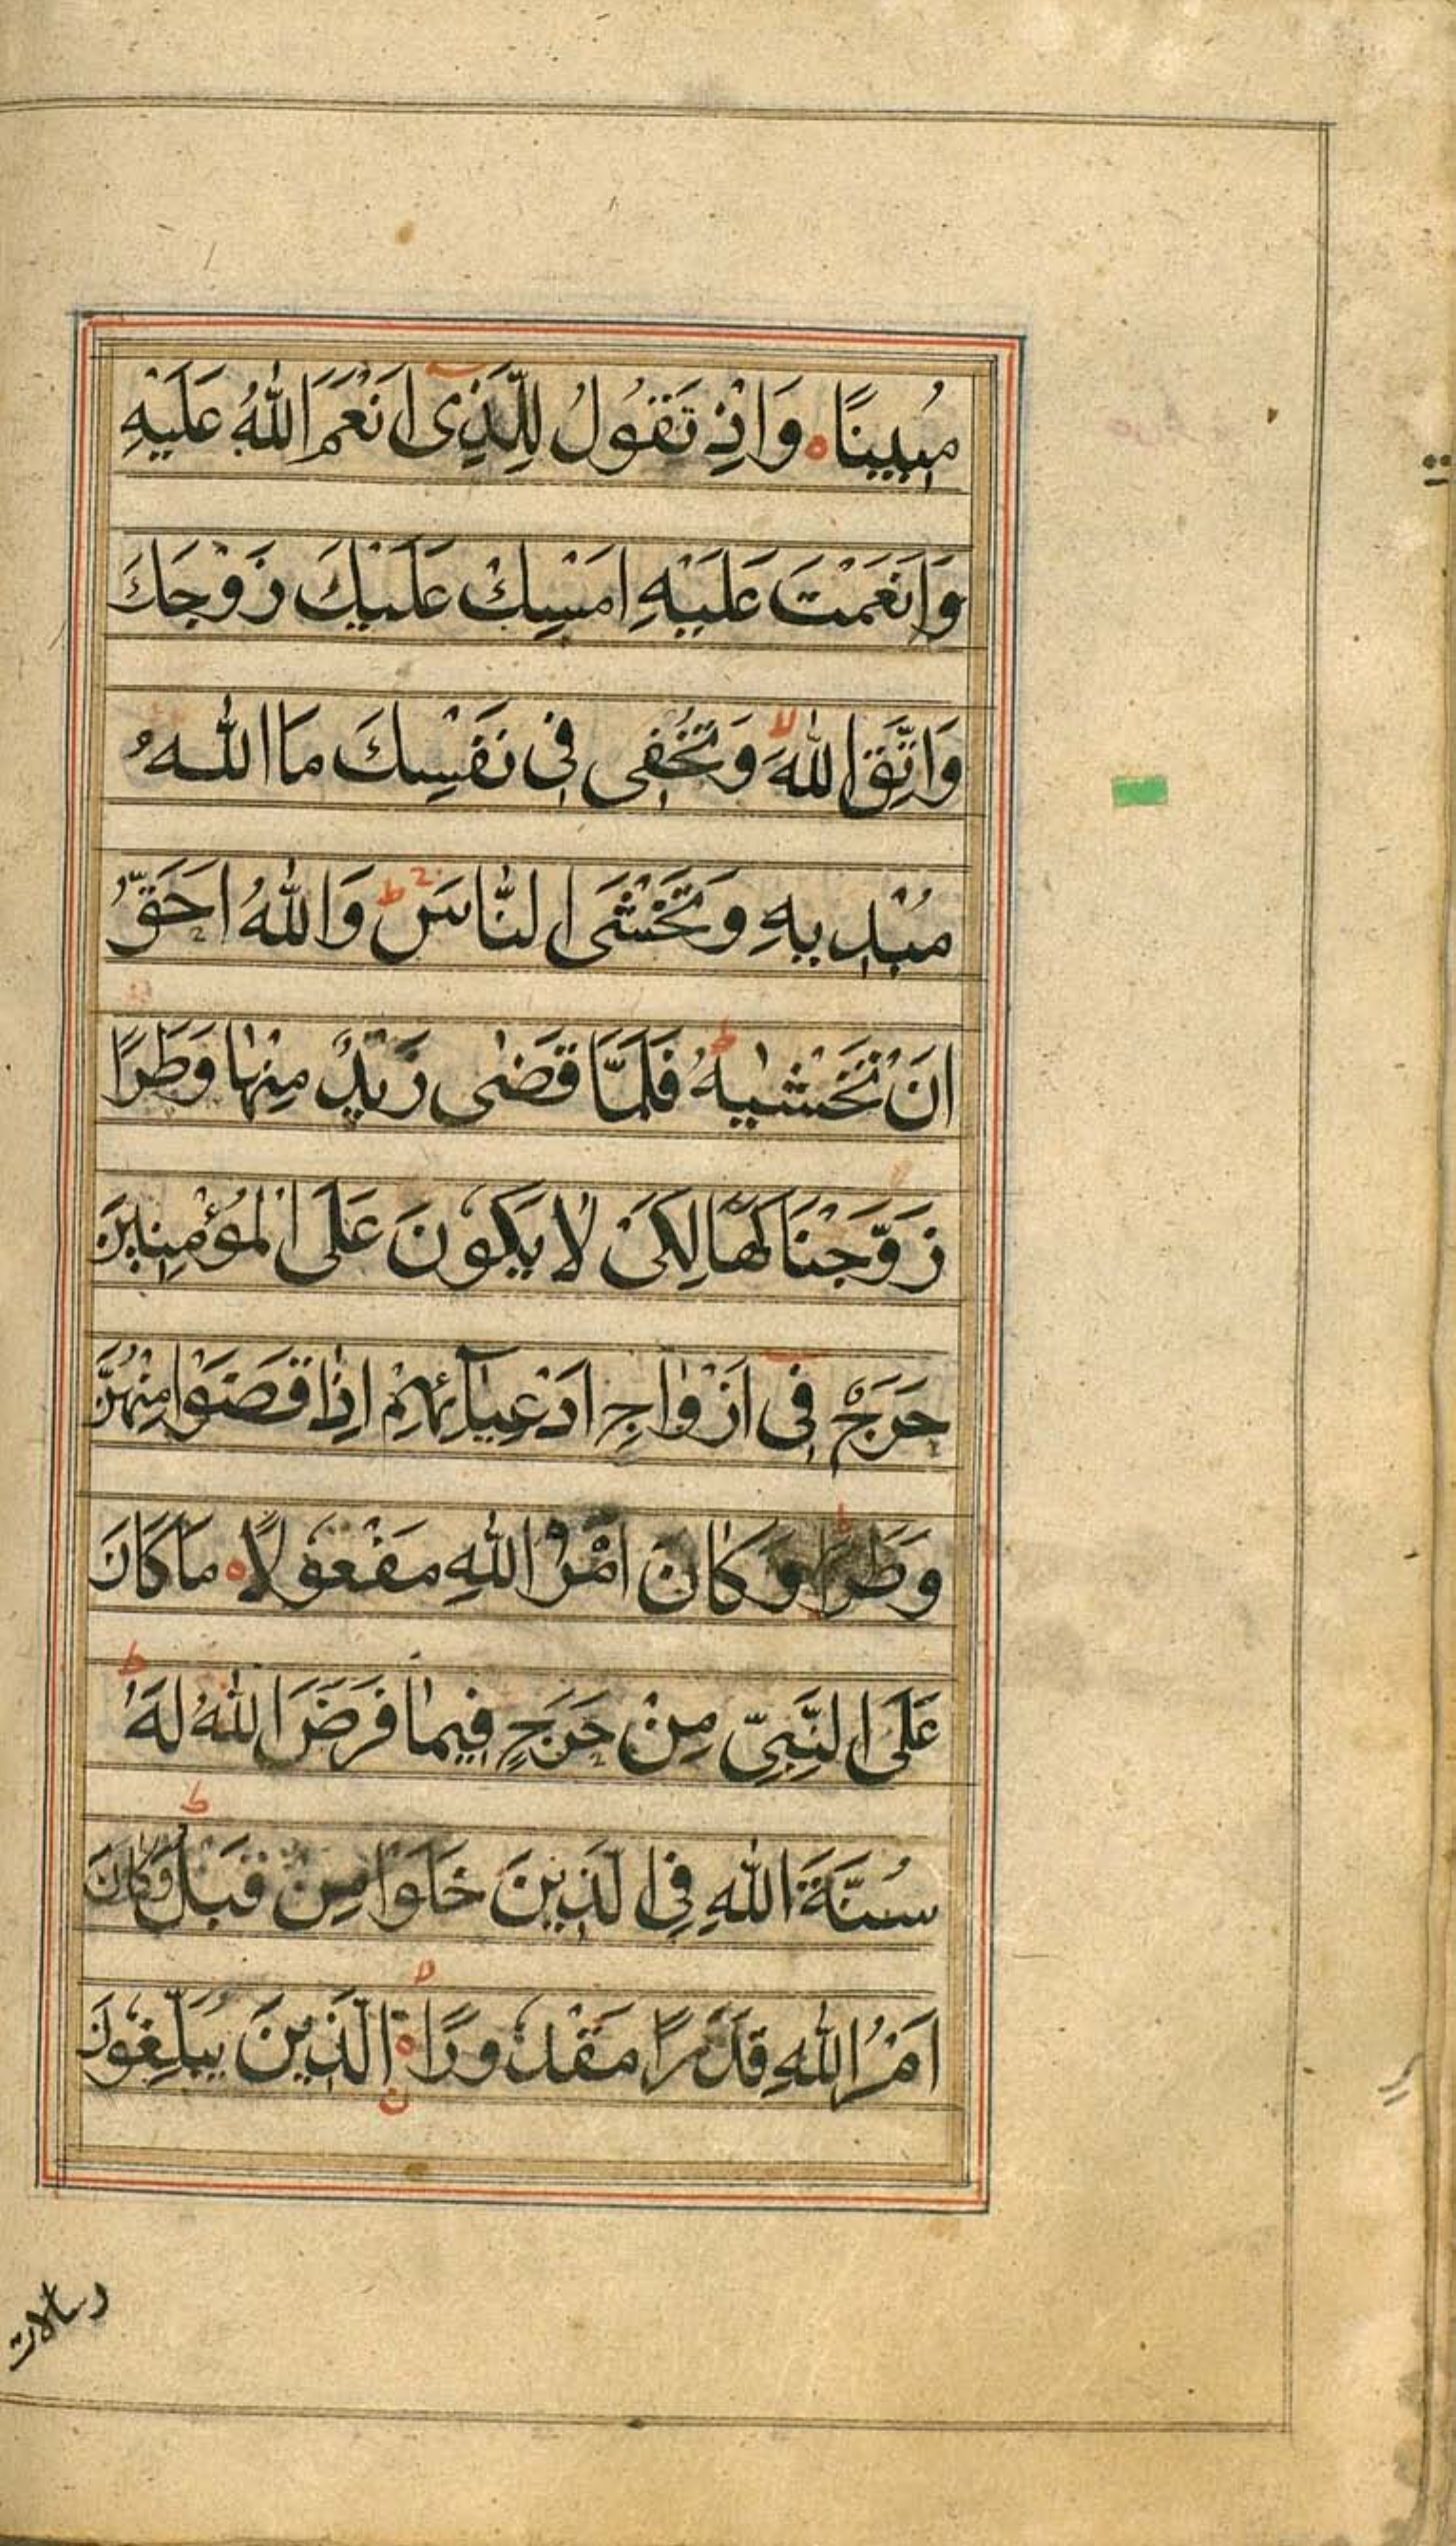 مُبِينًا ه وَاِذْ تَقُوْلُ لِلَّذِىْ اَنْعَمَ اللّٰهُ عَلَيْهِ
وَاَنْعَمْتَ عَلَيْهِ اَمْسِكْ عَلَيْكَ زَوْجَكَ
وَاتَّقِ اللّٰهَ لا وَتُخْفِى فِىْ نَفْسِكَ مَا اللّٰهُ
مُبْدِيهِ وَتَخْشَى النَّاسَ ط وَاللّٰهُ اَحَقُّ
اَنْ تَخْشٰيهُ ط فَلَمَّا قَضٰى زَيْدٌ مِنْهَا وَطَرًا
زَوَّجْنَاكَهَا لِكَىْ لَا يَكُوْنَ عَلَى الْمُؤْمِنِينَ
حَرَجٌ فِىْ اَزْوٰاجِ اَدْعِيَآئِهِمْ اِذَا قَضَوْا مِنْهُنَّ
وَطَرًا ط وَكَانَ اَمْرُ اللّٰهِ مَفْعُوْلًا ه مَا كَانَ
عَلَى النَّبِىِّ مِنْ حَرَجٍ فِيمَا فَرَضَ اللّٰهُ لَهُ ط
سُنَّةَ اللّٰهِ فِى الَّذِينَ خَلَوْا مِنْ قَبْلُ ط وَكَانَ
اَمْرُ اللّٰهِ قَدَرًا مَقْدُوْرًا ه لا الَّذِينَ يُبَلِّغُوْنَ
رسالات